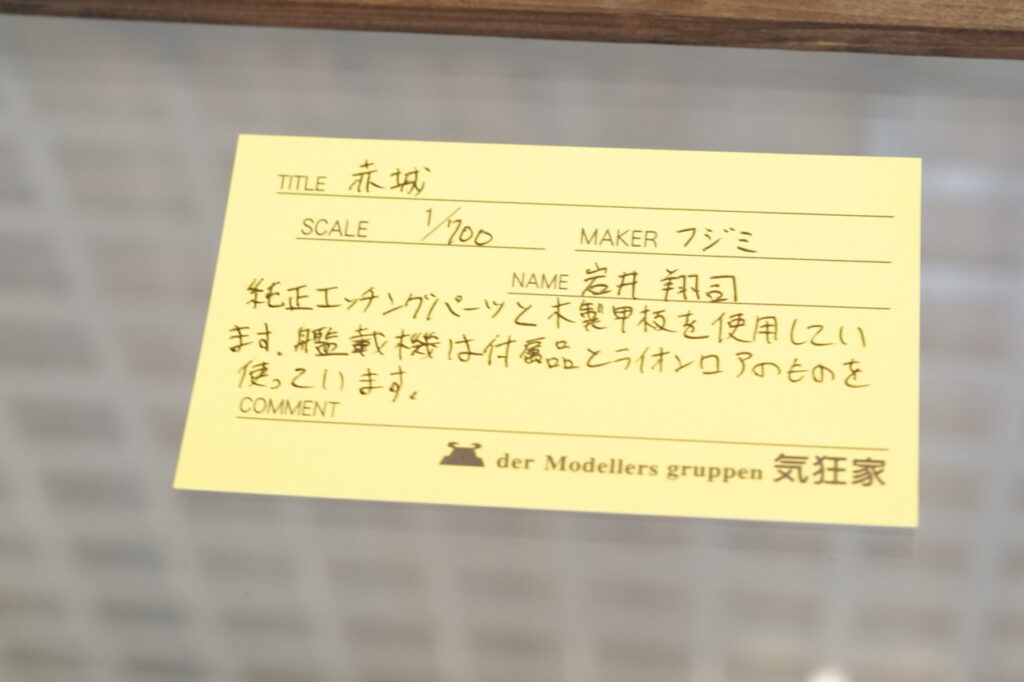 TITLE 赤城
SCALE 1/700 MAKER フジミ
NAME 岩井 翔司
純正エッチングパーツと木製甲板を使用してい
ます。艦載機は付属品とライオンロアのものを
使っています。
COMMENT
der Modellers gruppen 気狂家